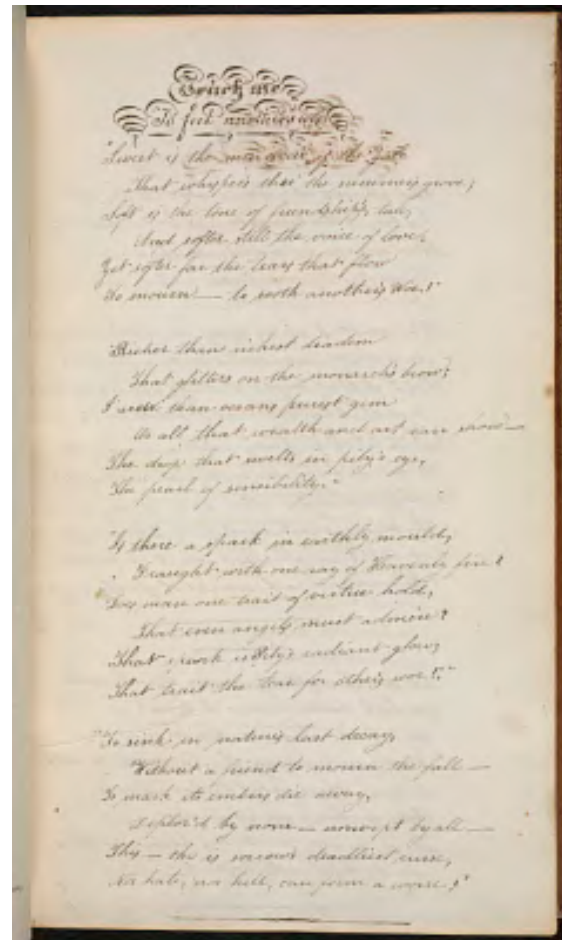 Teach me
To feel another's woe
"Sweet is the murmur of the gale
That whispers thro' the summer's grove;
Soft is the tone of friendship's tale,
And softer still the voice of love;
Yet softer far the tears that flow
To mourn — to sooth another's Woe!"
"Richer than richest diadem
That glitters on the monarch's brow;
than oceans purest gem
Or all that wealth and art can show —
The drop that melts in pity's eye,
The pearl of sensibility."
"Is there a spark in earthly mould,
Fraught with one ray of Heavenly fire?
Does man one trait of virtue hold,
That even angels must admire?
That spark is Pity's radiant glow,
That trait the tear for other's woe!"
"To sink in nature's last decay,
Without a friend to mourn the fall —
To mark its embers die away,
Deplor'd by none — unwept by all —
This — this is sorrow's deadliest curse,
Nor hate, nor hell, can form a worse!"